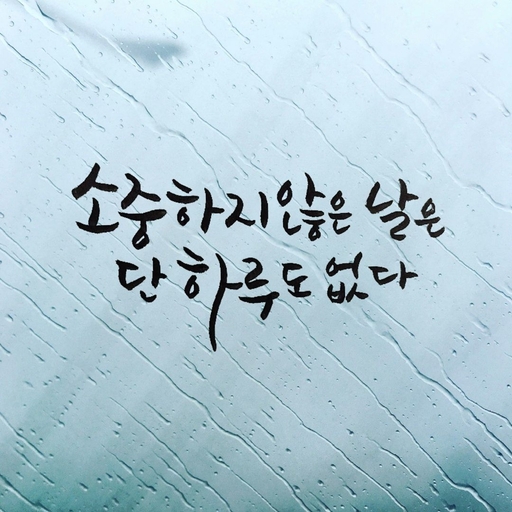 소중하지 않은 날은
단 하루도 없다